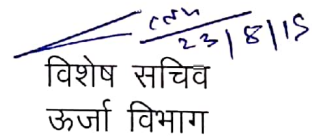 23/8/15
विशेष सचिव
ऊर्जा विभाग